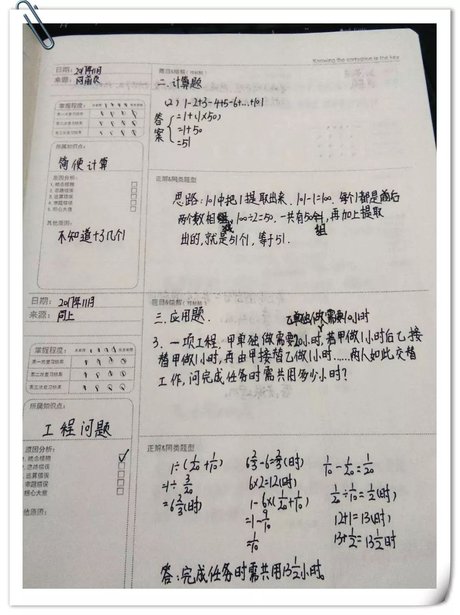 Knowing the correction is the key
日期: 2017年11月
题目&错解(对标题)
来源:
二、计算题
(2) 1-2+3-4+5-6+…+101
答案
=1+(1×50)
=1+50
=51
掌握程度:
所属知识点:
简便计算
原因分析:
1. 概念模糊
2. 思路错误
3. 运算错误
4. 审题错误
5. 粗心大意
其他原因:
不知道+多几个1
正解&同类题型
思路:101中把1提取出来.101-1=100.每个1都是前后
两个数相减,100÷2=50.一共有50组,再加上提取
出的,就是51个1,等于51.
日期: 2017年11月
题目&错解
来源: 同上
三、应用题.
乙单独做需要10小时
3、一项工程.甲单独做需要20小时,若甲做1小时后乙接
替甲做1小时,再由甲接替乙做1小时……两人如此交替
工作,问完成任务时需共用多少小时?
掌握程度:
所属知识点:
工程问题
原因分析:
1. 概念模糊
思路错误
运算错误
审题错误
粗心大意
他原因:
正解&同类题型
1÷(1/20+1/10)
=1÷3/20
=6 2/3(时)
6 2/3-6=2/3(时)
6×2=12(时)
1-6×(1/20+1/10)
=1-9/10
=1/10
1/10-1/20=1/20
1/20÷1/10=1/2(时)
12+1=13(时)
13+1/2=13 1/2(时)
答:完成任务时需共用13 1/2小时。